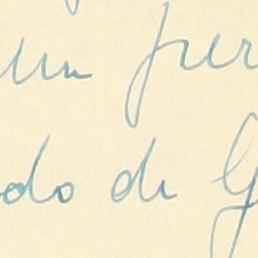 un per
do di G